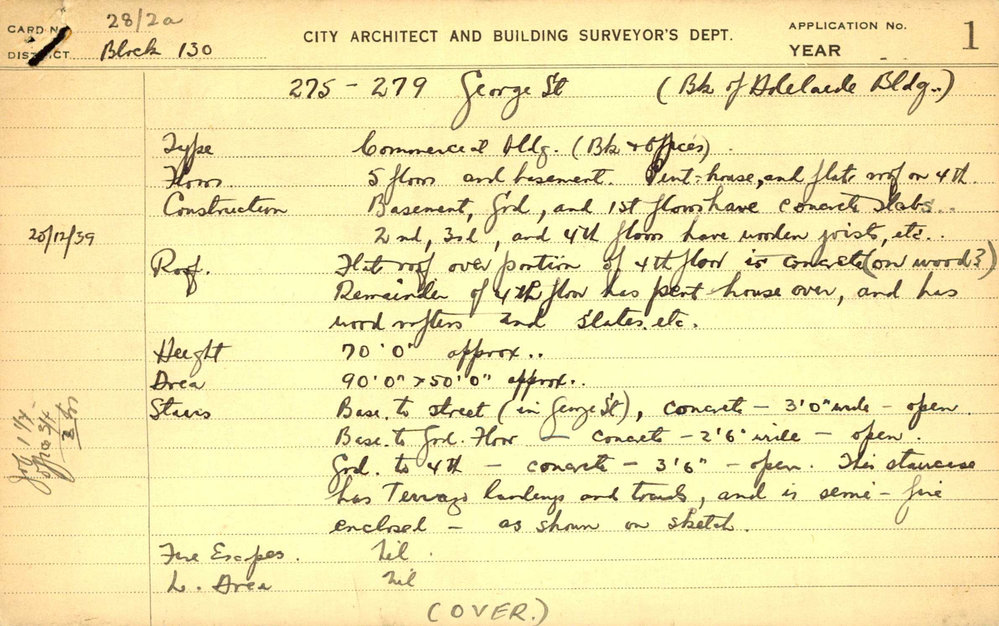 CARD No. 28/2a
DISTRICT Block 130
CITY ARCHITECT AND BUILDING SURVEYOR'S DEPT.
APPLICATION No.
YEAR
1
275 - 279 George St (Bk of Adelaide Bldg.)
Type Commercial Bldg. (Bk & Offices).
Floors 5 floors and basement. Pent-house, and flat roof on 4th.
Construction Basement, Grd, and 1st floors have concrete slabs..
20/12/39
2nd, 3rd, and 4th floors have wooden joists, etc..
Roof. Flat roof over portion of 4th floor is concrete (on wood?)
Remainder of 4th floor has pent house over, and has
wood rafters and slates. etc.
Height 70'0" approx..
Area 90'0" x 50'0" approx..
Stairs Base. to street (in George St), concrete - 3'0" wide - open.
Base. to Grd. Floor - concrete - 2'6" wide - open.
Grd. to 4th - concrete - 3'6" - open. This staircase
has Terrazo landings and treads, and is semi-fire
enclosed - as shown on sketch.
Fire Escapes. Nil.
L. Area Nil
(OVER.)